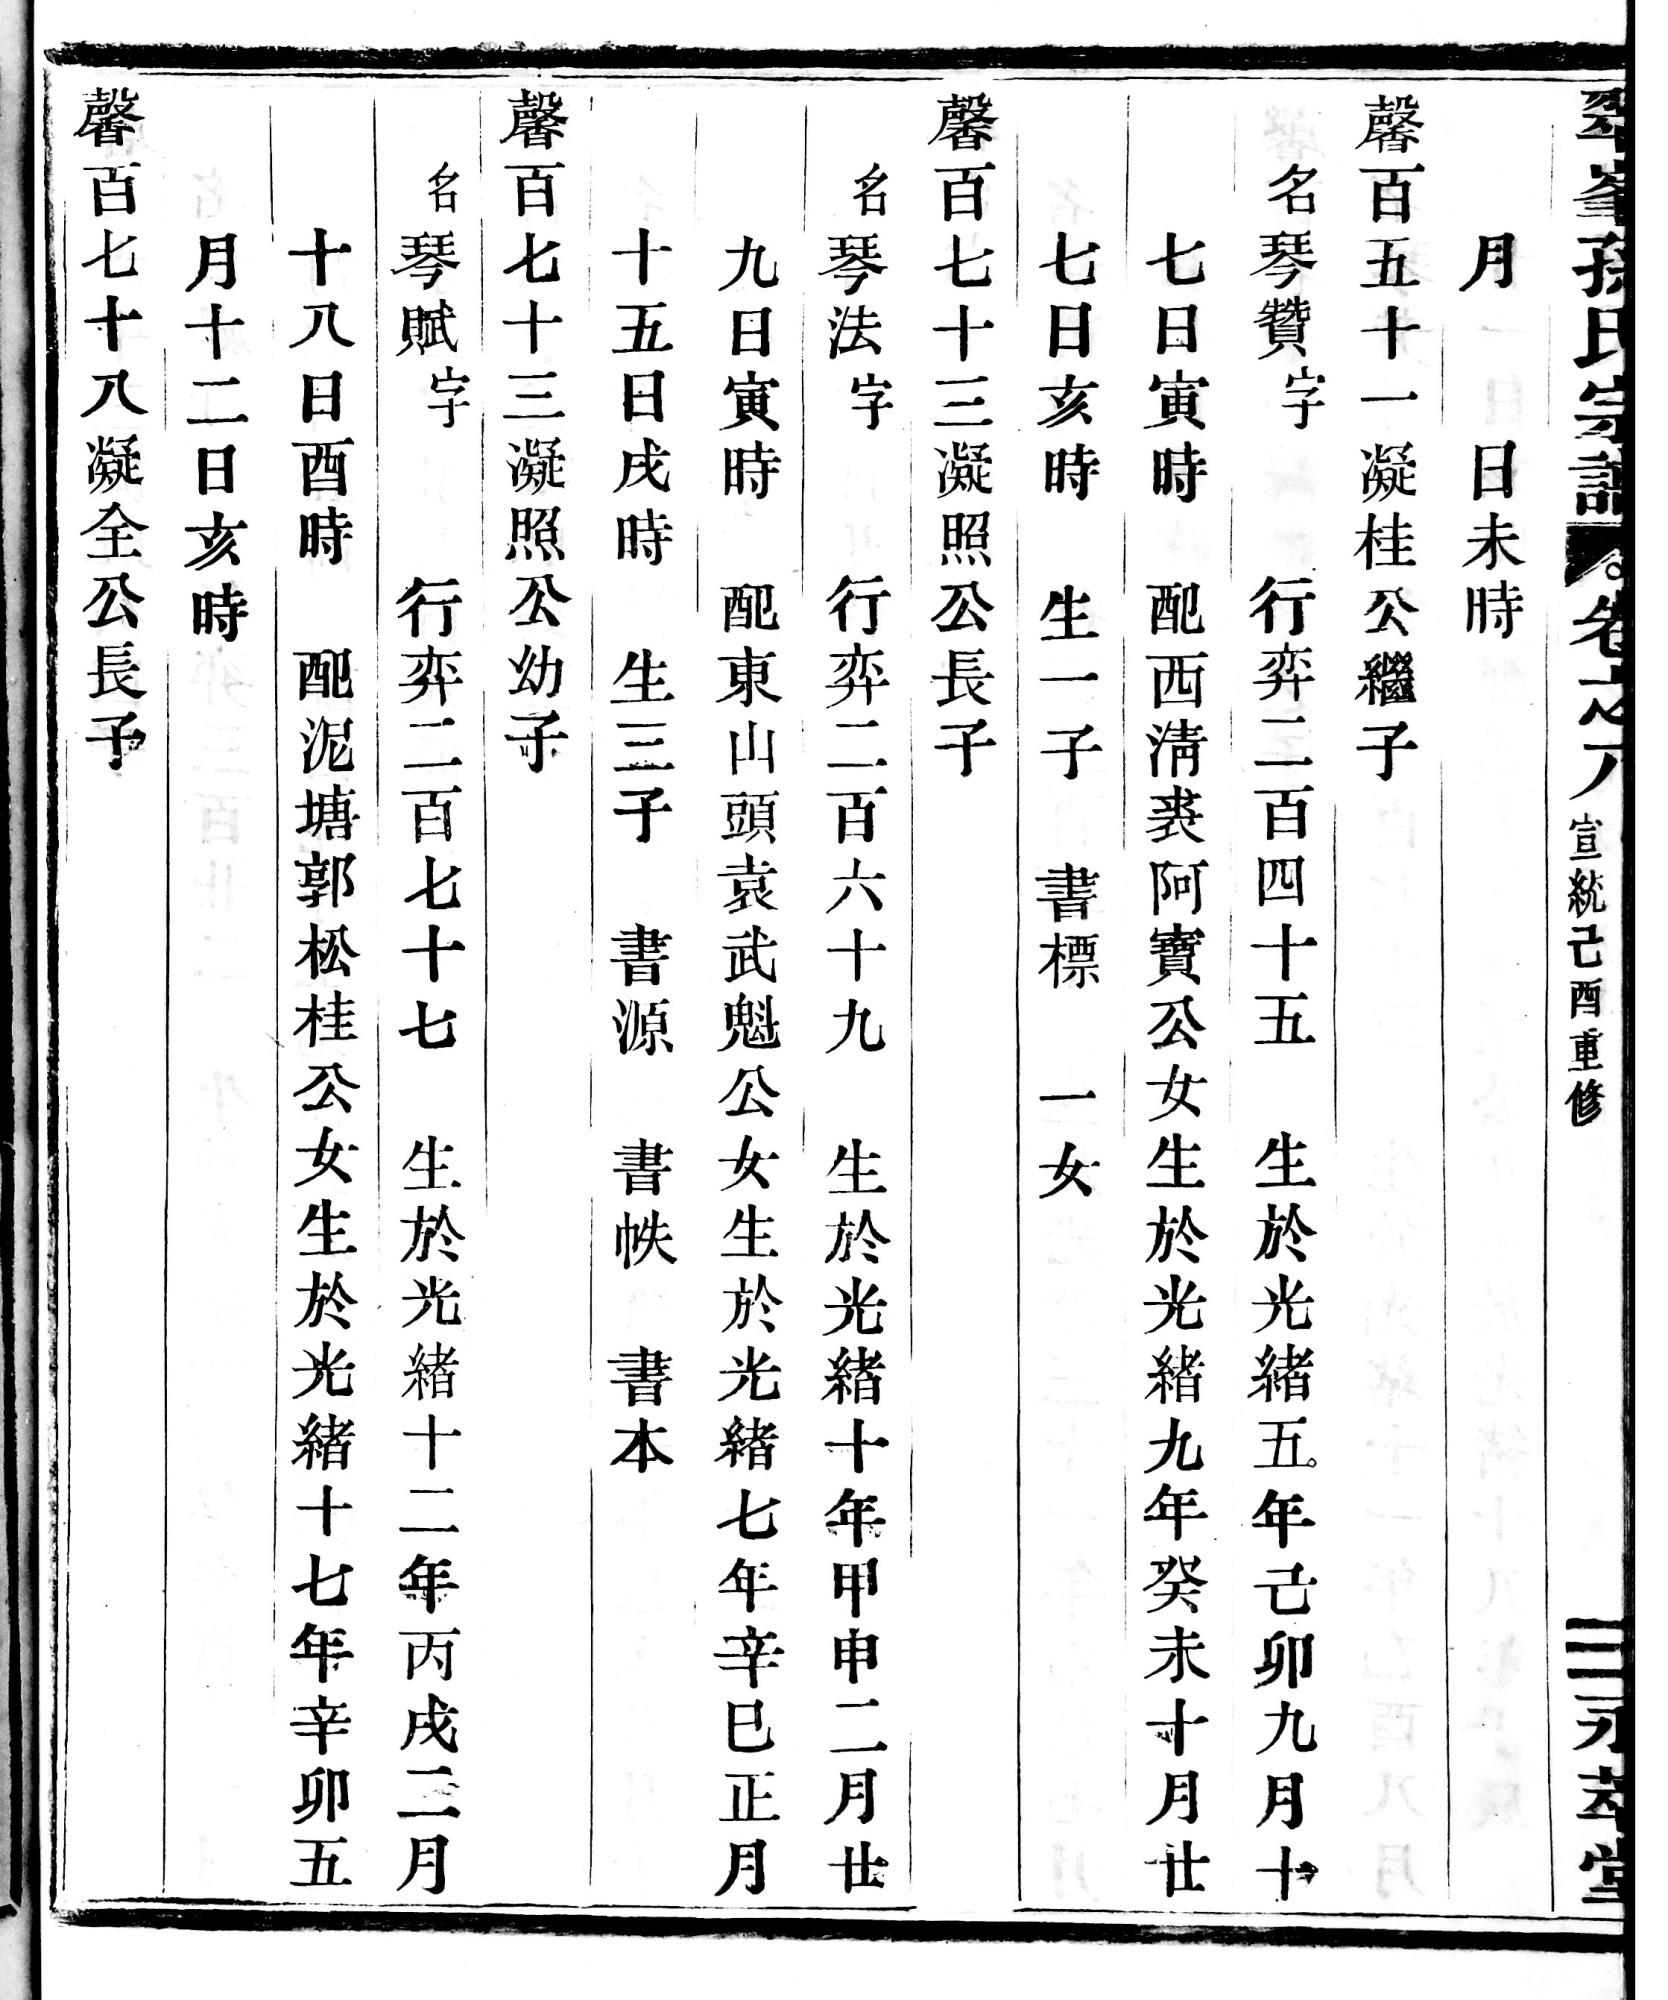 翠峯孫氏宗譜 卷之八 宣統己酉重修 三 永萃堂
月 日未時
馨百五十一凝桂公繼子
名琴贊字 行弈二百四十五 生於光緒五年己卯九月十
七日寅時 配西淸裘阿寶公女生於光緒九年癸未十月廿
七日亥時 生一子 書標 一女
馨百七十三凝照公長子
名琴法字 行弈二百六十九 生於光緒十年甲申二月廿
九日寅時 配東山頭袁武魁公女生於光緒七年辛巳正月
十五日戌時 生三子 書源 書帙 書本
馨百七十三凝照公幼子
名琴賦字 行弈二百七十七 生於光緒十二年丙戌二月
十八日酉時 配泥塘郭松桂公女生於光緒十七年辛卯五
月十二日亥時
馨百七十八凝全公長子